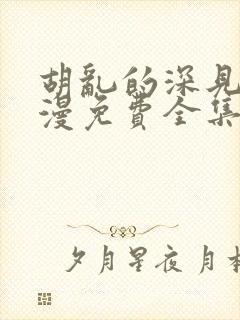 胡亂的深見
漫免費全集
夕月星夜月